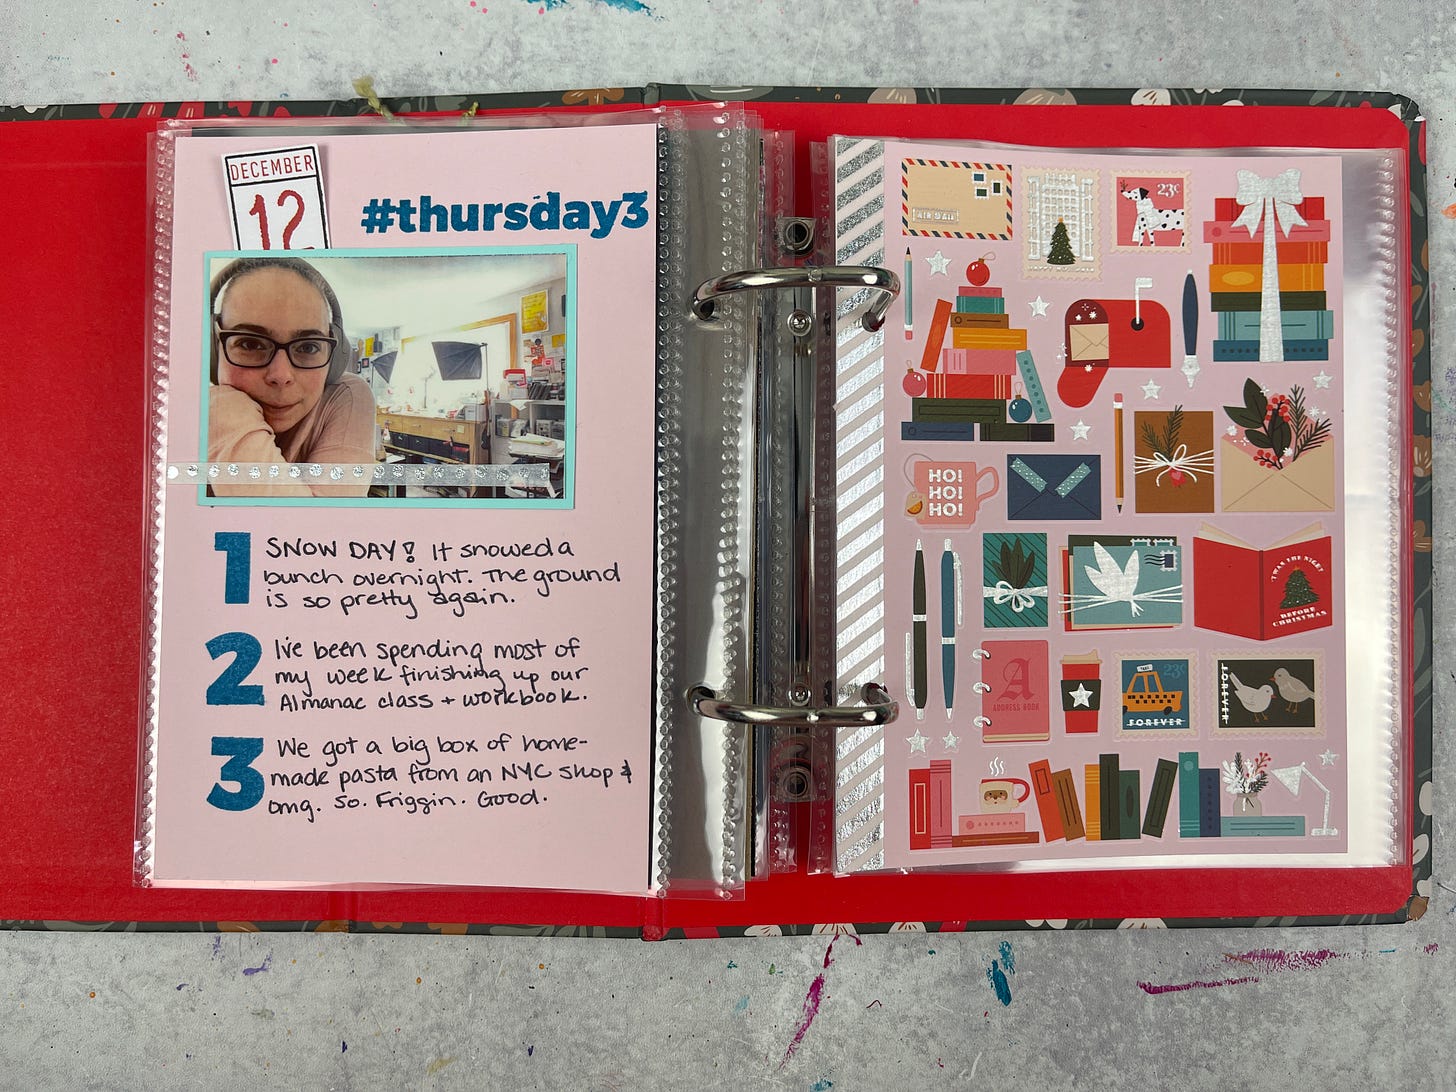 DECEMBER
12
#thursday3
1 SNOW DAY! It snowed a
bunch overnight. The ground
is so pretty again.
2 I've been spending most of
my week finishing up our
Almanac class + workbook.
3 We got a big box of home-
made pasta from an NYC shop &
omg. So. Friggin. Good.
AIR MAIL
23¢
HO!
HO!
HO!
'TWAS THE NIGHT
BEFORE
CHRISTMAS
A
ADDRESS BOOK
TAXI
23¢
FOREVER
FOREVER